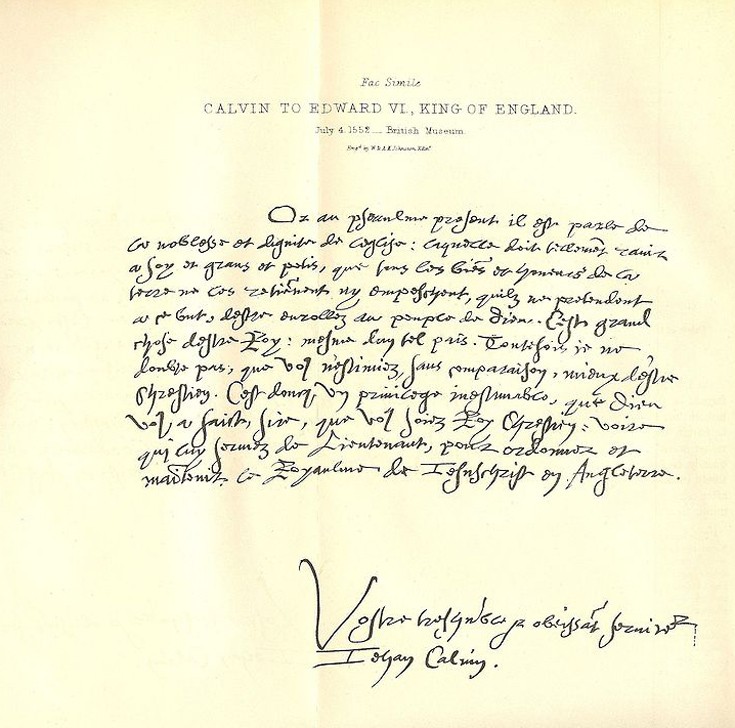 Fac Simile
CALVIN TO EDWARD VI., KING OF ENGLAND.
July 4. 1552 __ British Museum.
Engd. by W. & A.K. Johnston, Edinr.
Or au pseaulme present il est parle de
la noblesse et dignite de leglise: laquelle doit tellement ravir
a soy et grans et petis, que tous les biẽs et hõneurs de la
terre ne les retiẽnent ny empeschent, quilz ne pretendent
a ce but, destre enrollez au peuple de Dieu. Cest grand
chose destre Roy: mesme dun tel pais. Toutesfois ie ne
doubte pas, que vous nestimiez, sans comparaison, mieux destre
Chrestien. Cest doncq un privilege inestimable, que Dieu
vous a faict, sire, que vous soiez Roy Chrestien: voire
qui luy servez de Lieutenant, pour ordonner et
maĩtenir le Royaulme de Iesuschrist en Angleterre.
Vostre treshũble & obeissãt serviteur
Iehan Calvin.